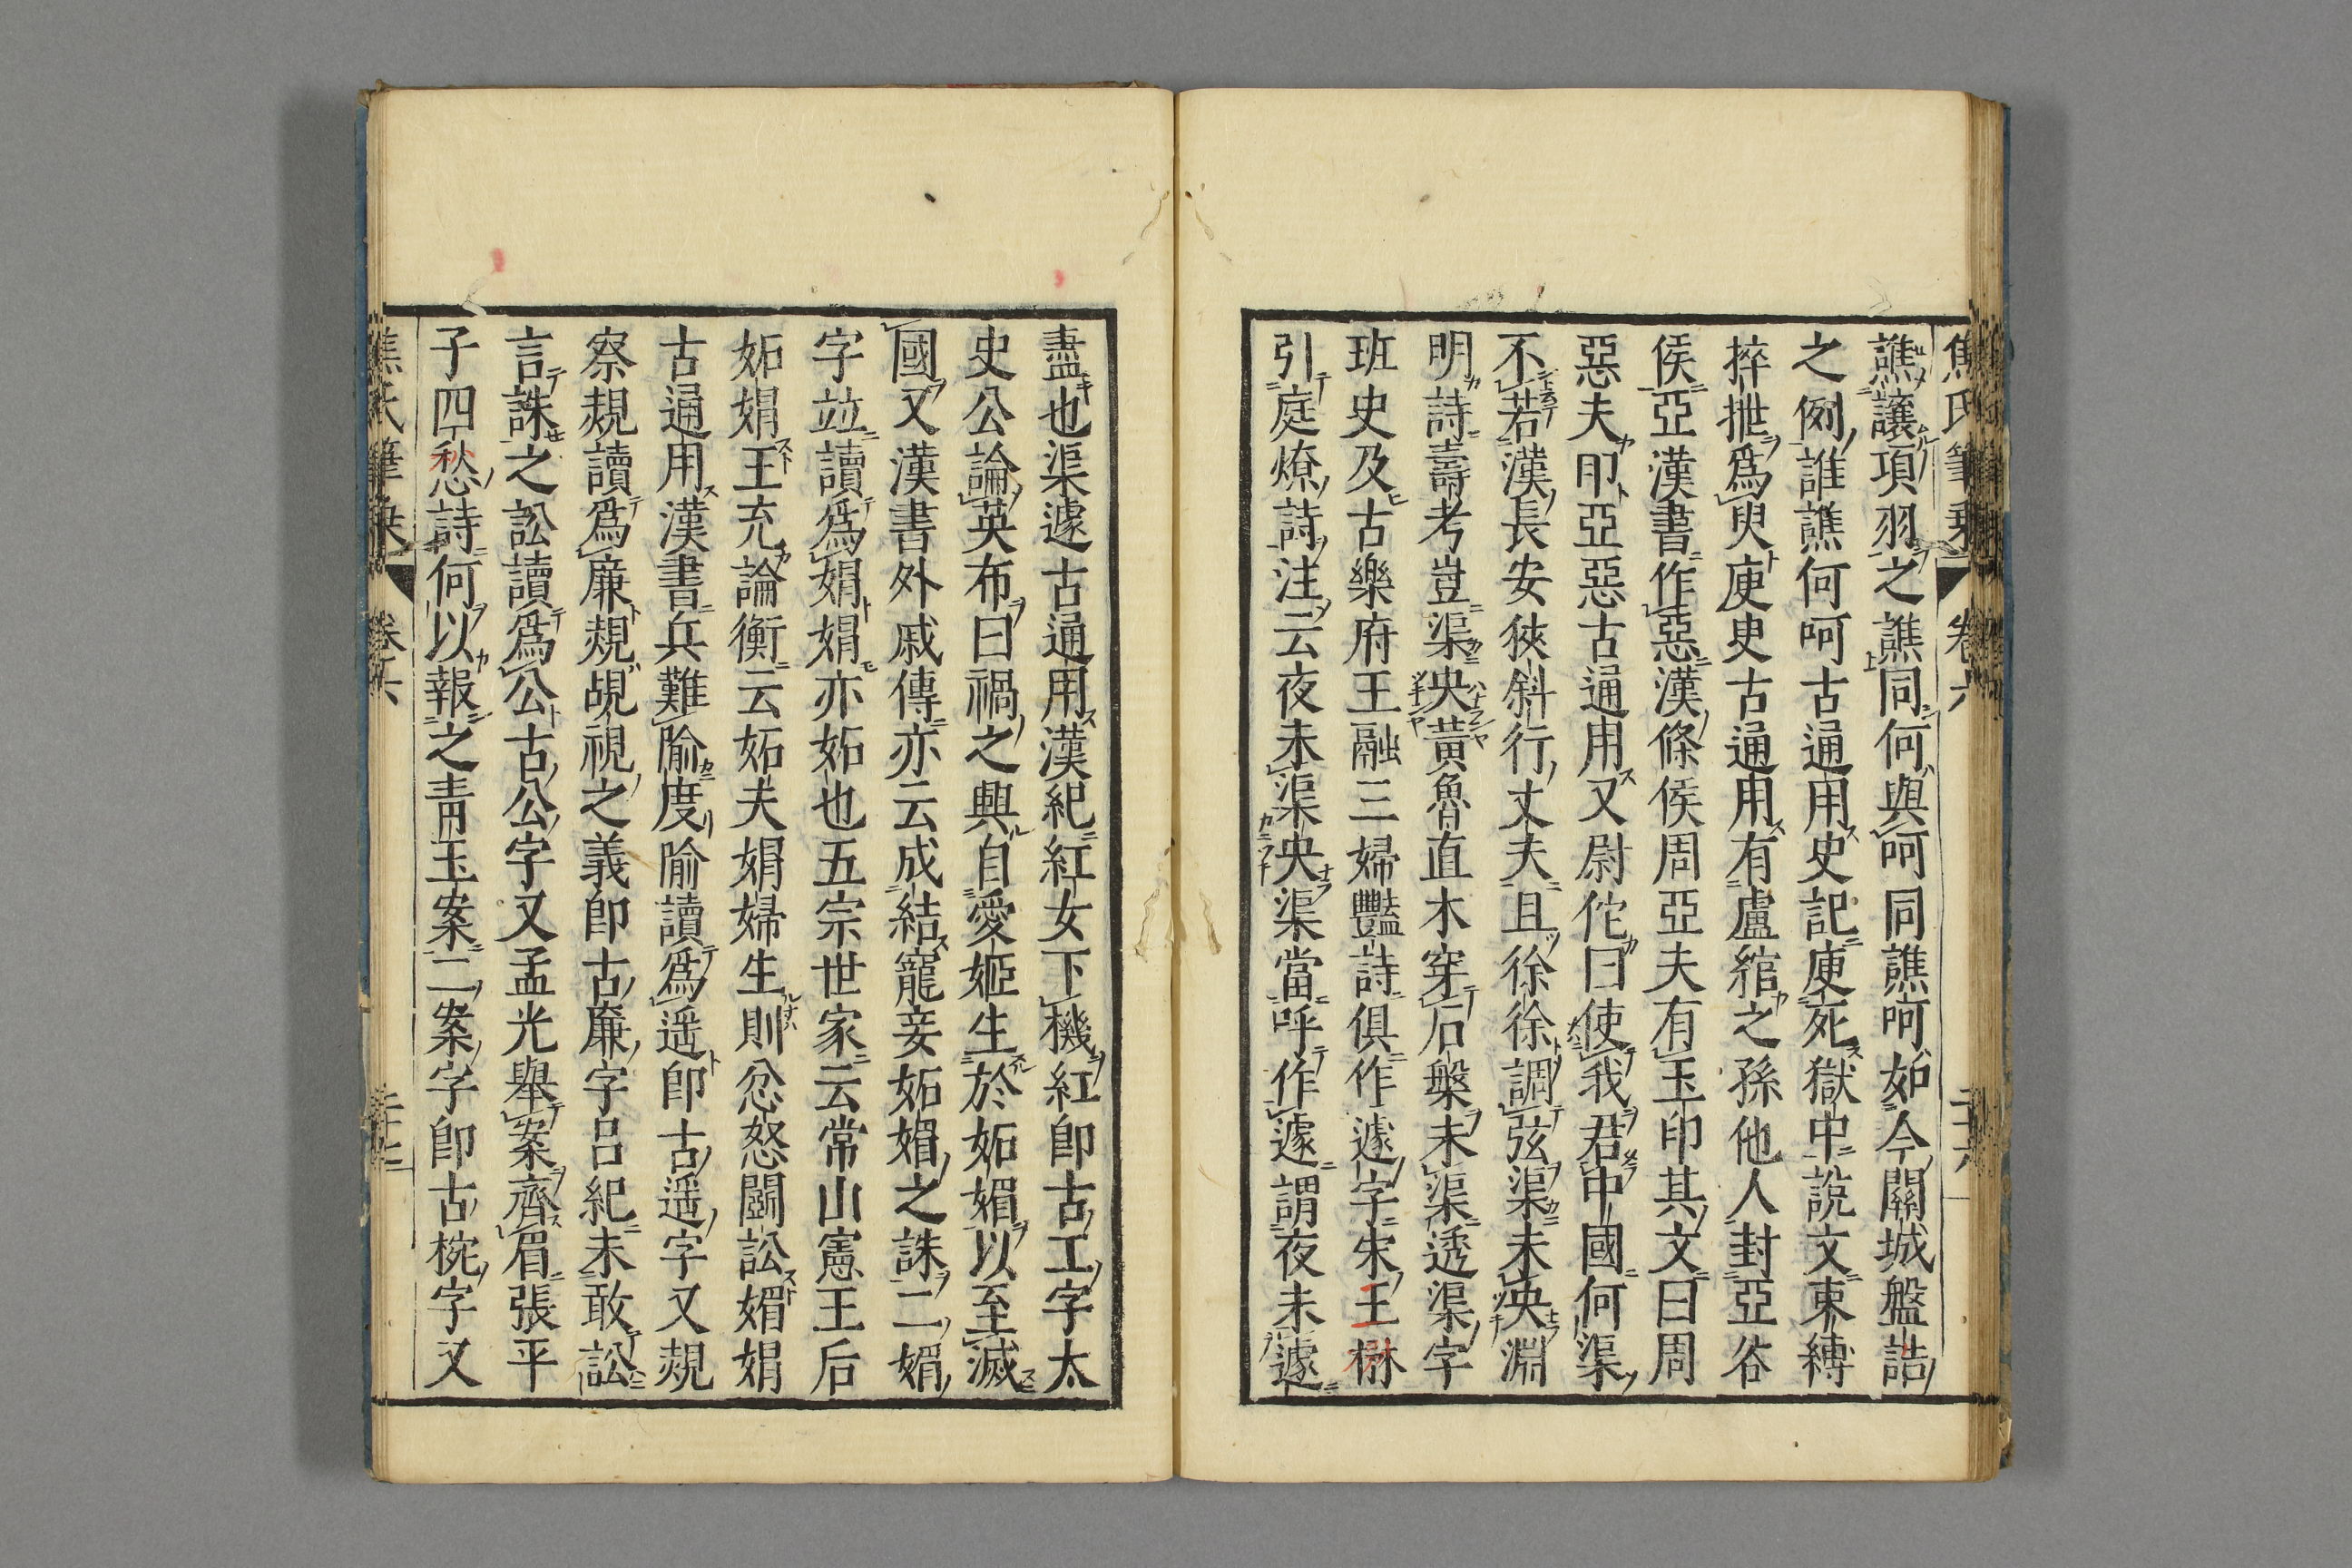 焦氏筆乘 卷六 二十六
譙讓項羽之譙同何與呵同譙呵如今關城盤詰
之例誰譙何呵古通用史記庾死獄中說文束縛
捽抴爲臾庾臾古通用有盧綰之孫他人封亞谷
侯亞漢書作惡漢條侯周亞夫有玉印其文曰周
惡夫印亞惡古通用又尉佗曰使我君中國何渠
不若漢長安狹斜行丈夫且徐徐調弦渠未央淵
明詩壽考豈渠央黃魯直木穿石槃未渠透渠字
班史及古樂府王融三婦豔詩俱作遽字宋王楙
引庭燎詩注云夜未渠央渠當呼作遽謂夜未遽
盡也渠遽古通用漢紀紅女下機紅卽古工字太
史公論英布曰禍之興自愛姬生於妬媢以至滅
國又漢書外戚傳亦云成結寵妾妬媢之誅二媢
字竝讀爲娼娼亦妬也五宗世家云常山憲王后
妬娼王充論衡云妬夫娼婦生則忿怒鬭訟媢娼
古通用漢書兵難隃度隃讀爲遥卽古遥字又覝
察覝讀爲廉覝覘視之義卽古廉字呂紀未敢訟
言誅之訟讀爲公古公字又孟光舉案齊眉張平
子四愁詩何以報之靑玉案二案字卽古椀字又
焦氏筆乘 卷六 二十七